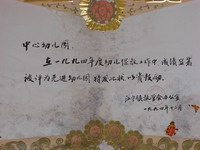 中心幼儿园:
在一九九四年度幼儿保教工作中成绩显著
被评为先进幼儿园特发此状以资鼓励。
教育委员会
一九九四年十二月